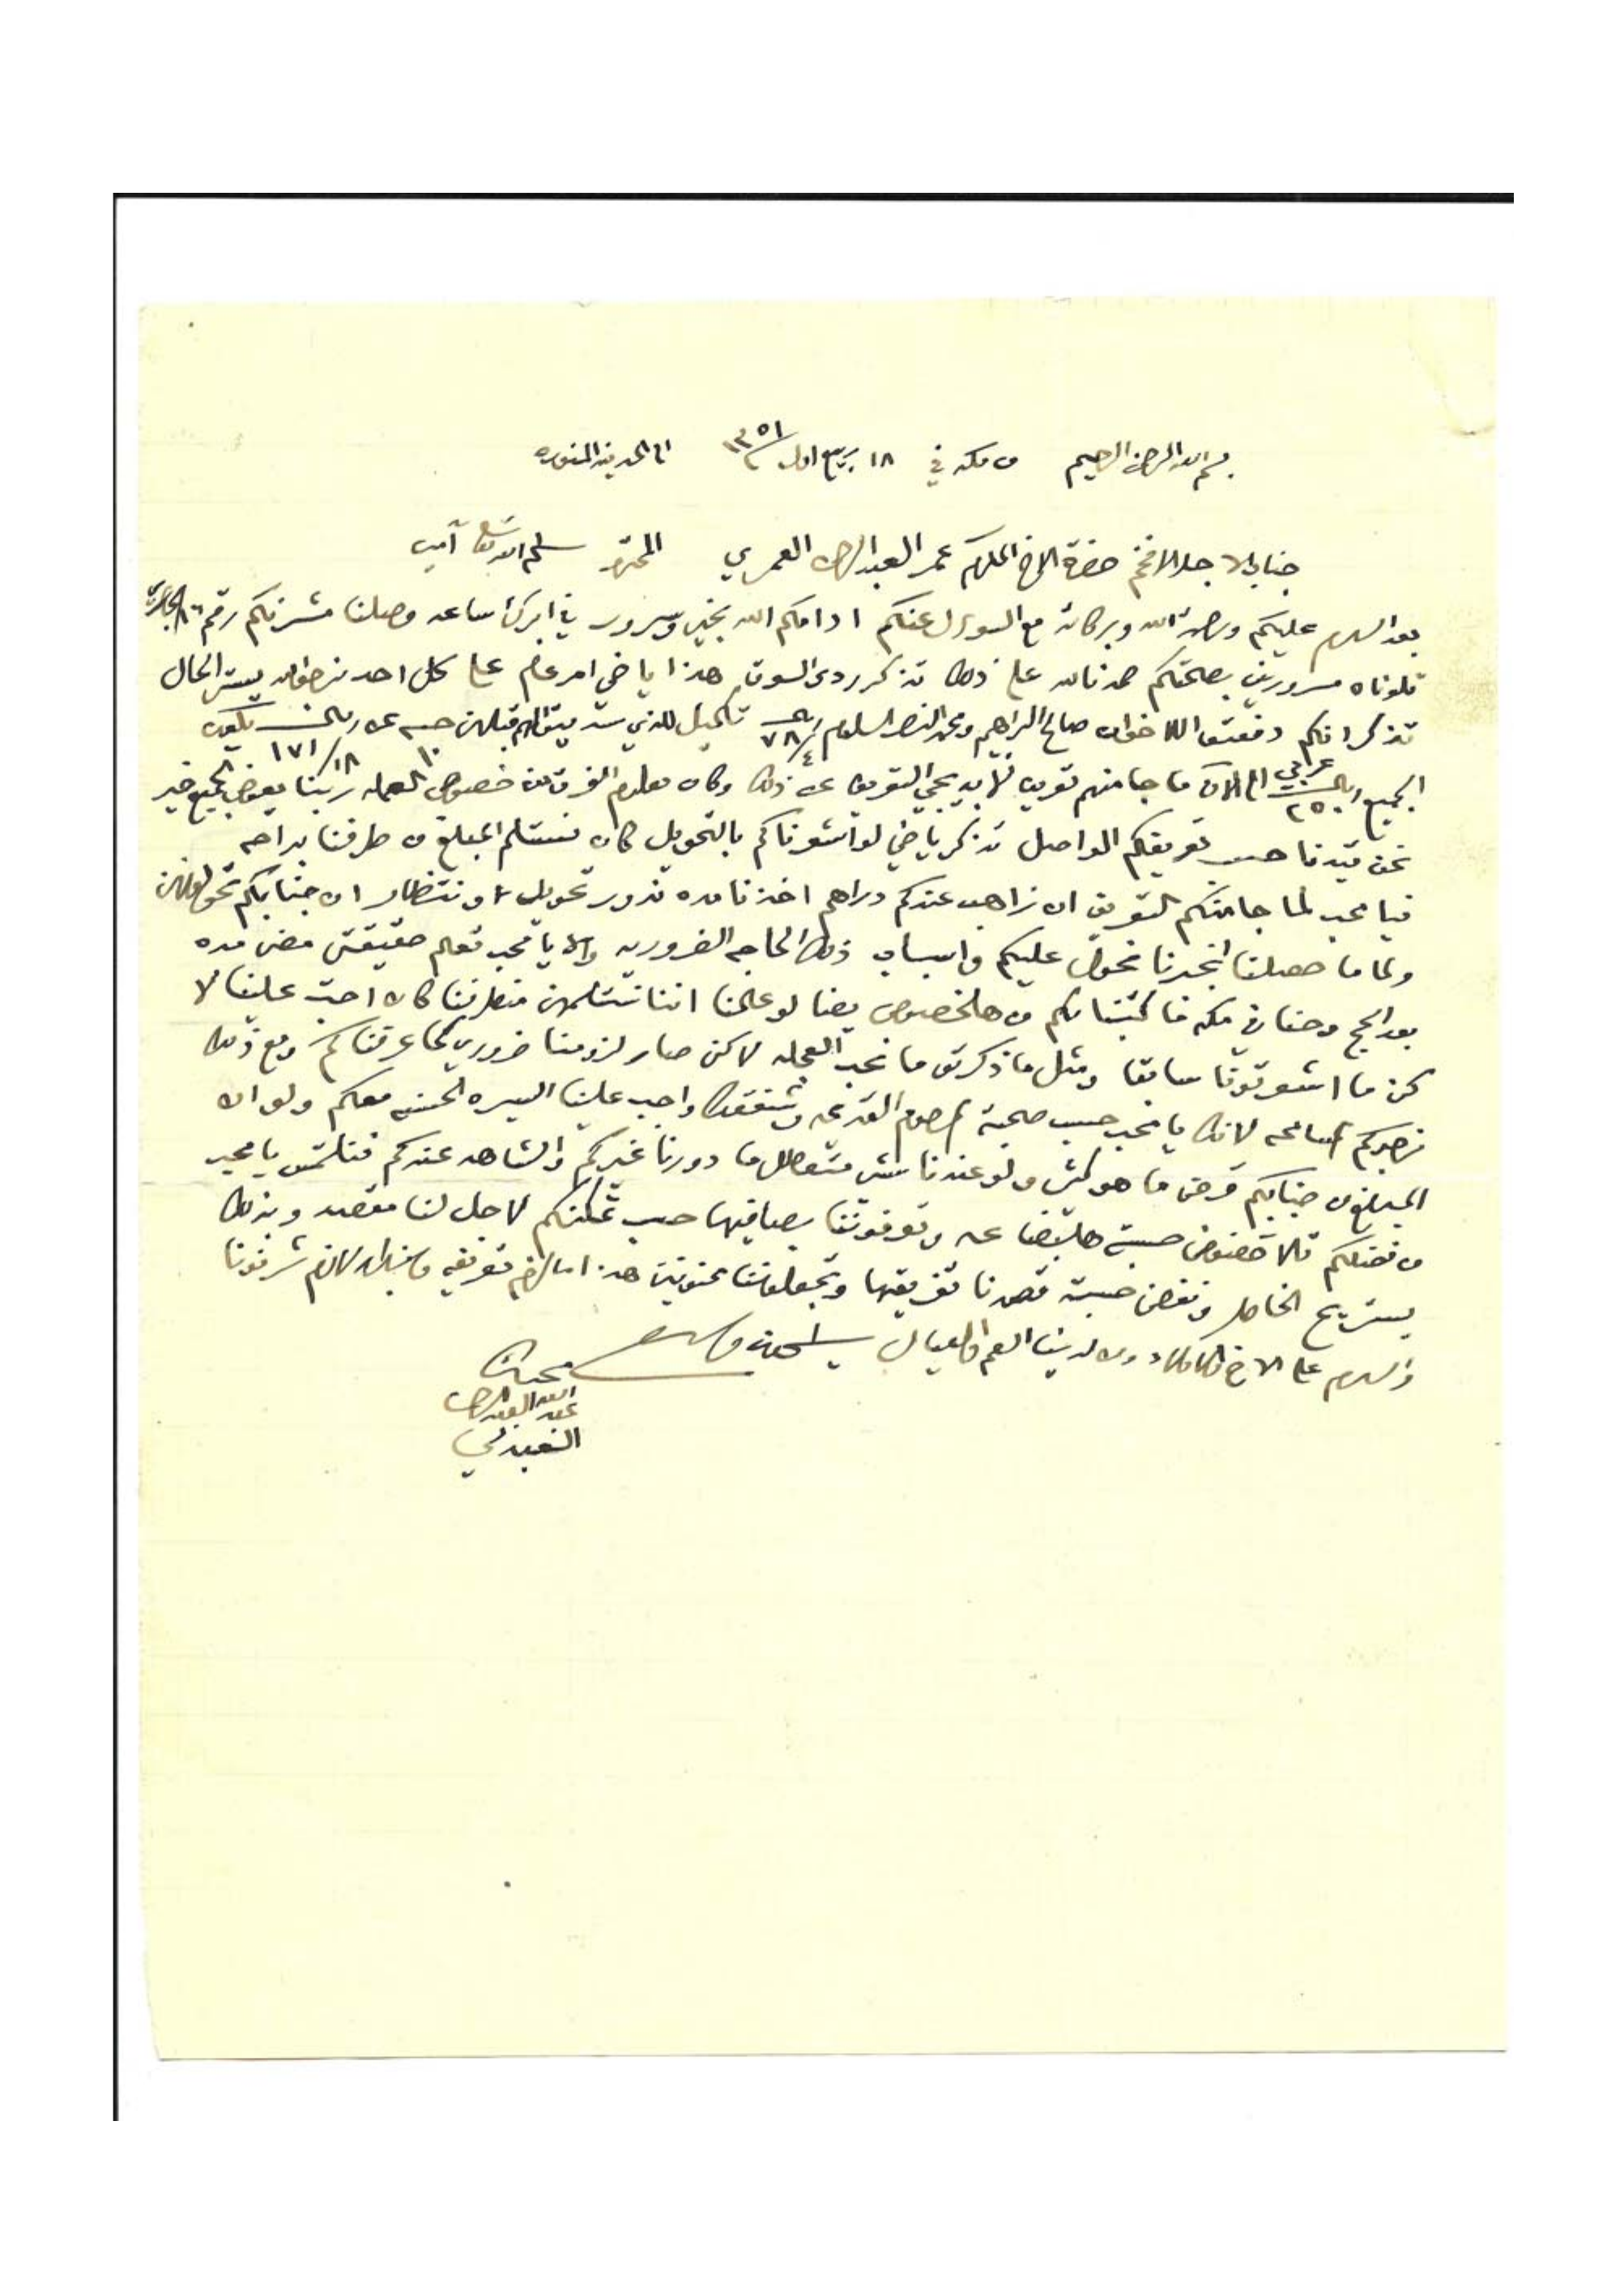 بسم الله الرحمن الرحيم من مكه في ١٨ ربيع اول ١٣٥١ الى المدينه المنوره
جناب الاجل الافخم حضرة الاخ المكرم عمر العبدالرحمن العمري المحترم سلمه الله تعالى آمين
بعد السلام عليكم ورحمة الله وبركاته مع السوءل عنكم ادامكم الله بخير وسرور في ابرك ساعه وصلنا مشرفكم رقم ٨ الجاري
تلوناه مسرورين بصحتكم حمدنا الله على ذلك تذكر ردى السوق هذا ياخي امر عام على كل احد نرجو الله يستر الحال
تذكر انكم دفعتوا للاخوان صالح البراهيم ومحمد النصر السلوم ريال ٧٨/٤ تكميل للذي سديتوا لهم قبلهن حسبه عن ريال ١٧١/١٨ يكون
الجميع ريال عربي ٢٥٠ الى الآن ما جا منهم تعريف لابد يجي التعريف عن ذلك وكان معلوم الفرق من خصوص العمله ربنا يعوض الجميع خير
نحن قيدنا حسب تعريفكم الواصل تذكر ياخي لو اشعرناكم بالتحويل كان نستلم المبلغ من طرفنا براحه
فيا محب لما جا منكم التعريف ان زاهب عندكم دراهم اخذنا مده ندور تحويل او ننتظار ان جنابكم تحولونهن
ولما ما حصلنا انجبرنا نحول عليكم واسباب ذلك الحاجه الضروريه والا يا محب تعلم حقيقتن مضى مده
بعد الحج وحنا في مكه ما كتبنا لكم من هالخصوص يضا لو علمنا اننا نستلمهن منطرفنا كان احب علينا لا
كن ما اشعرتونا سابقا ومثل ما ذكرتو ما نحب العجله لاكن صار لزومنا ضروري كما عرفناكم ومع ذلك
نرجوكم السامحه لانك يا محب حسب صحبة المرحوم القدعه وشفقتك واجب علينا السيره الحسنه معكم ولو ان
المبلغ من جنابكم قرض ما هو كثير ولو عندنا شي متعطل ما دورنا غيركم والشاهد عندكم فنلتمس يا محب
من فضلكم تلاحضون حسبة هالبضاعه وتوفوننا بصافيها حسب تمكنكم لاجل لنا مقصد وبذلك
يستريح الخاطر ونفض حسبة قصدنا تفريقها وتجعلوننا ممنونين هذا ما لزم تعريفه وما يبدا لازم شرفونا
والسلام على الاخ والاولاد ومن لدينا العم والعيال يسلمون والسلام
محبك
عبدالله العبدالرحمن